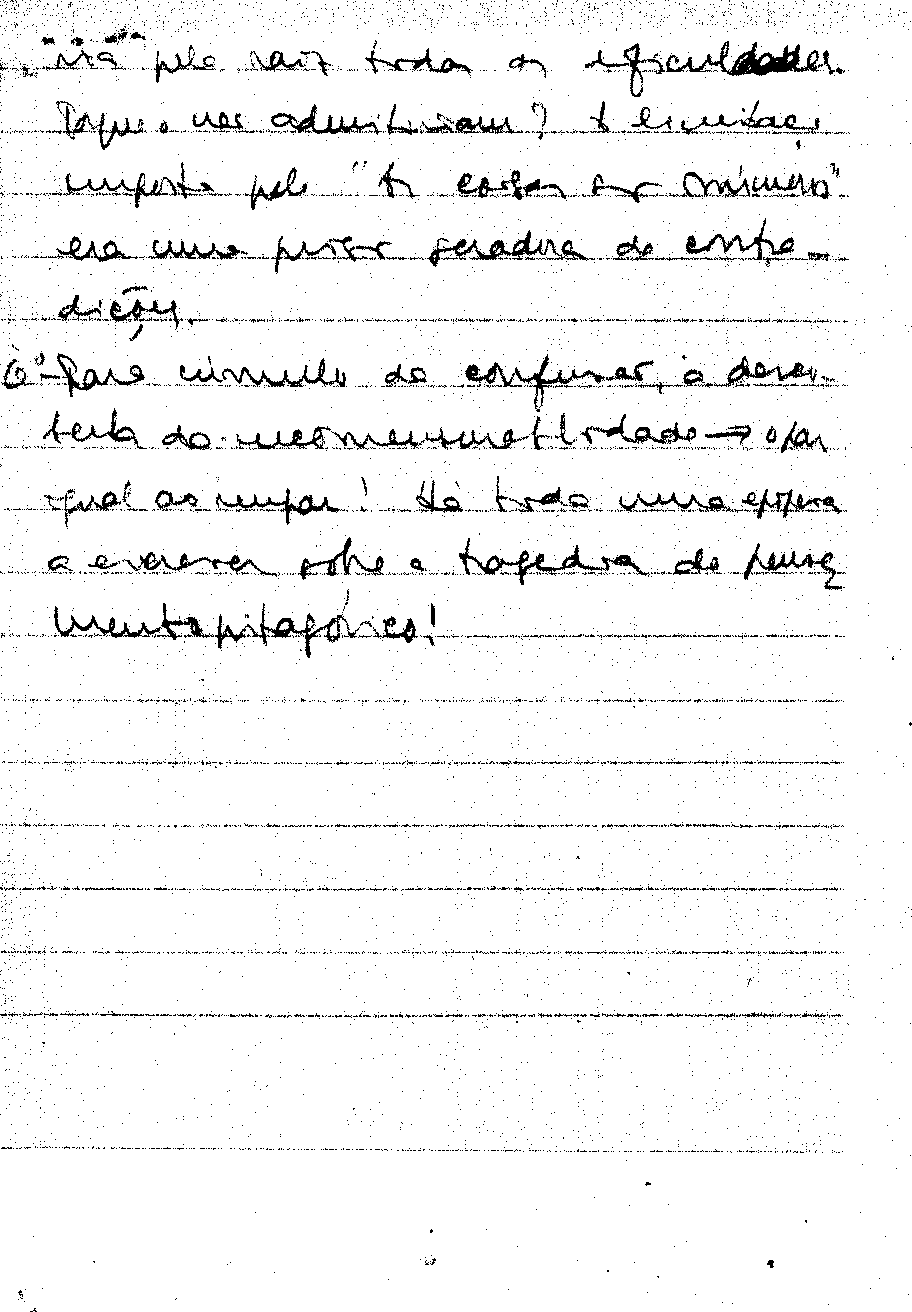 ria pela raiz todas as dificuldades.
Porque o não admitiriam? A limitação
imposta pelo "As coisas são números"
era uma prisão geradora de contra-
dições.
6º - Para cúmulo da confusão, a desco-
berta da incomensurabilidade → o par
igual ao ímpar! Há toda uma epopeia
a escrever sobre a tragédia do pensa
mento pitagórico!